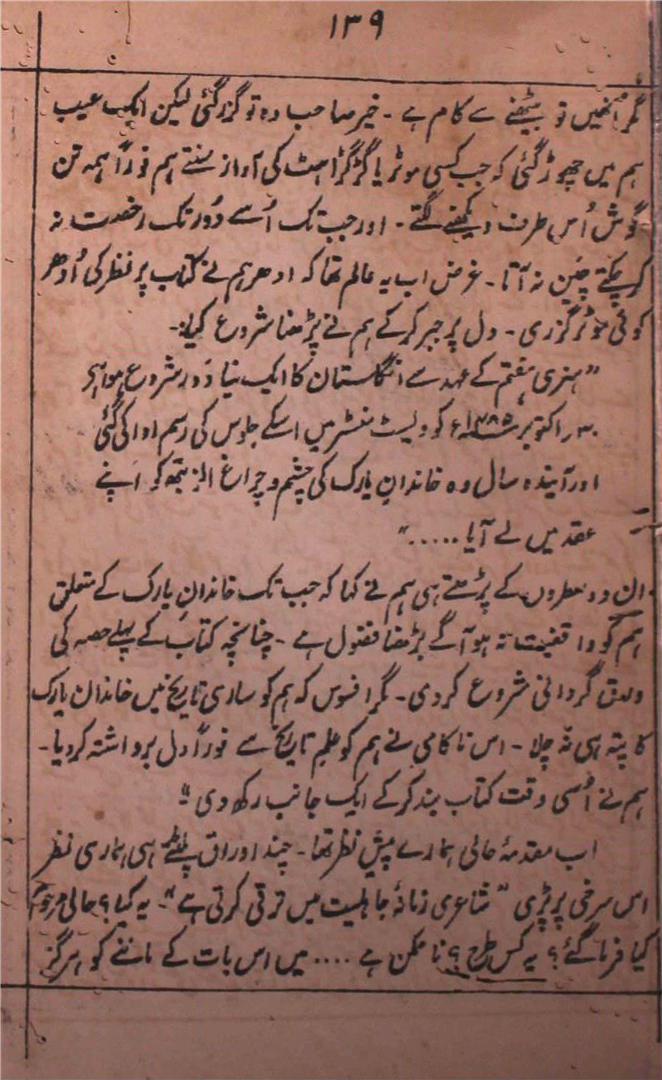 ۱۳۹
مگر انھیں تو بیٹھنے سے کام ہے ۔ خیر صاحب وہ تو گزر گئی لیکن ایک عیب
ہم میں چھوڑ گئی کہ جب کسی موٹر یا گڑگڑاہٹ کی آواز سنتے ہم فوراً ہمہ تن
گوش اُس طرف دیکھنے لگتے ۔ اور جب تک اُسے دُور تک رخصت نہ
کر چکتے چین نہ آتا ۔ غرض اب یہ عالم تھا کہ ادھر ہم نے کتاب پر نظر کی اُدھر
کوئی موٹر گزری ۔ دل پر جبر کر کے ہم نے پڑھنا شروع کیا:-
”ہنری ہفتم کے عہد سے انگلستان کا ایک نیا دَور شروع ہوا ہے
۳۰ر اکتوبر ۱۴۸۵ء کو ویسٹ منسٹر میں اسکے جلوس کی رسم ادا کی گئی
اور آیندہ سال وہ خاندانِ یارک کی چشم و چراغ الزبتھ کو اپنے
عقد میں لے آیا .....“
ان دو سطروں کے پڑھتے ہی ہم نے کہا کہ جب تک خاندانِ یارک کے متعلق
ہم کو واقفیت نہ ہو آگے بڑھنا فضول ہے ۔ چنانچہ کتاب کے پہلے حصہ کی
ورق گردانی شروع کر دی ۔ مگر افسوس کہ ہم کو ساری تاریخ میں خاندان یارک
کا پتہ ہی نہ چلا ۔ اس ناکامی نے ہم کو علمِ تاریخ سے فوراً دل برداشتہ کر دیا ۔
ہم نے اُسی وقت کتاب بند کر کے ایک جانب رکھ دی “
اب مقدمۂ حالی ہمارے پیش نظر تھا ۔ چند اوراق پلٹے ہی ہماری نظر
اس سرخی پر پڑی ” شاعری زمانۂ جاہلیت میں ترقی کرتی ہے “ ۔ یہ کیا ؟ حالی مرحوم
کیا فرما گئے ؟ یہ کس طرح ؟ ناممکن ہے .... میں اس بات کے ماننے کو ہرگز